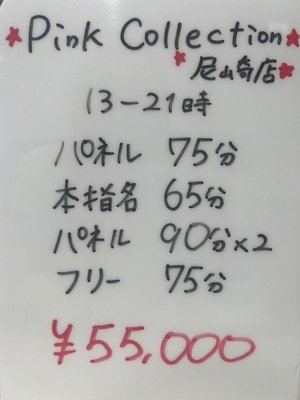 Pink Collection
尼崎店
13-21時
パネル 75分
本指名 65分
パネル 90分×2
フリー 75分
¥55,000